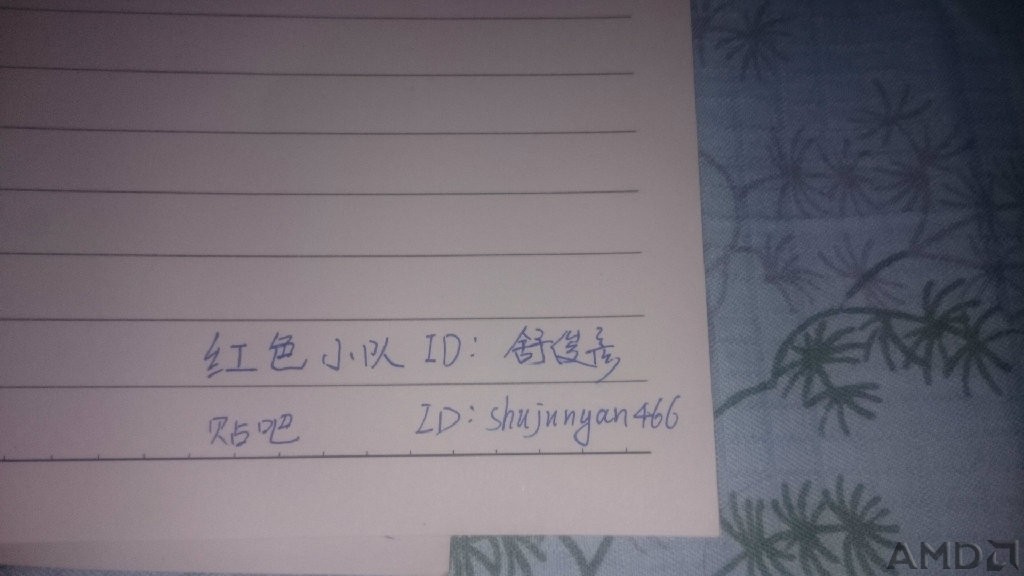 红色小队 ID: 舒俊彦
贴吧 ID: shujunyan466
AMD